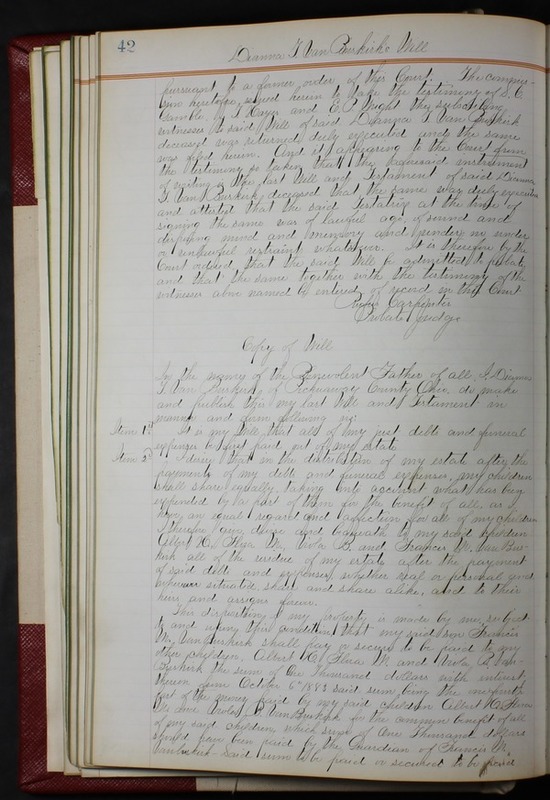 42
Dianna T. Van Buskirks Will
pursuant to a former order of this Court. The commis-
sion heretofore issued herein to take the testimony of S. C.
Gamble, and C. P. Wright the subscribing
witnesses to said Will of said Dianna T. Van Buskirk
deceased was returned duly executed and the same
was filed herein. And it appearing to the Court from
the testimony so taken that the aforesaid instrument
of writing is the last Will and Testament of said Dianna
T. Van Buskirk, deceased that the same was duly executed
and attested that the said Testatrix at the time of
signing the same was of lawful age, of sound and
disposing mind and memory and under no undue
or unlawful restraint whatsoever. It is therefore by the
Court ordered, that the said Will be admitted to probate
and that the same together with the testimony of the
witnesses above named be entered of record in this Court.
Carpenter
Probate Judge
Copy of Will
In the name of the Benevolent Father of all, I Dianna
T. Van Buskirk of Pickaway County Ohio do make
and publish this my last Will and Testament in
manner and form following viz:
Item 1st It is my Will that all of my just debts and funeral
expenses be first paid out of my estate
Item 2d I desire that in the distribution of my estate after the
payments of my debt and funeral expenses, my children
shall share equally, taking into account what has been
expended by a part of them for the benefit of all, as I
have an equal regard and affection for all of my children
I therefore give, devise and bequeath to my said children
Albert H., Flora M., Viola B. and Francis M. Van Bus-
kirk all of the residue of my estate after the payment
of said debts and expenses, whether real or personal and
wherever situated, share and share alike, and to their
heirs and assigns forever.
This disposition of my property is made by me, subject
to and upon this condition, that my said son Francis
M. Van Buskirk shall pay or secure to be paid to my
other children, Albert H., Flora M. and Viola B. Van-
Buskirk the sum of One Thousand dollars with interest
thereon from October 6th 1888 said sum, being the
part of the money paid by my said children Albert H., Flora
M. and Viola B. Van Buskirk for the common benefit of all
of my said children, which sum of One Thousand dollars
should have been paid by the Guardian of Francis M.
VanBuskirk. Said sum to be paid or secured to be paid